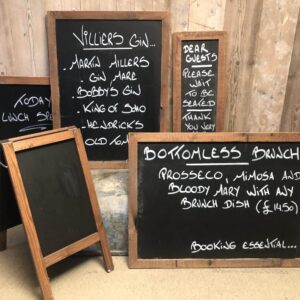 VILLIERS GIN...
. MARTIN MILLERS
. GIN MARE
. BOBBY'S GIN
. KING OF SOHO
. HENDRICK'S
OLD TOM
DEAR
GUESTS
PLEASE
WAIT
TO BE
SEATED
THANK
YOU VERY
TODAY
LUNCH SPE
BOTTOMLESS BRUNCH
PROSSECO, MIMOSA AND
BLOODY MARY WITH ANY
BRUNCH DISH (£14.50)
BOOKING ESSENTIAL...